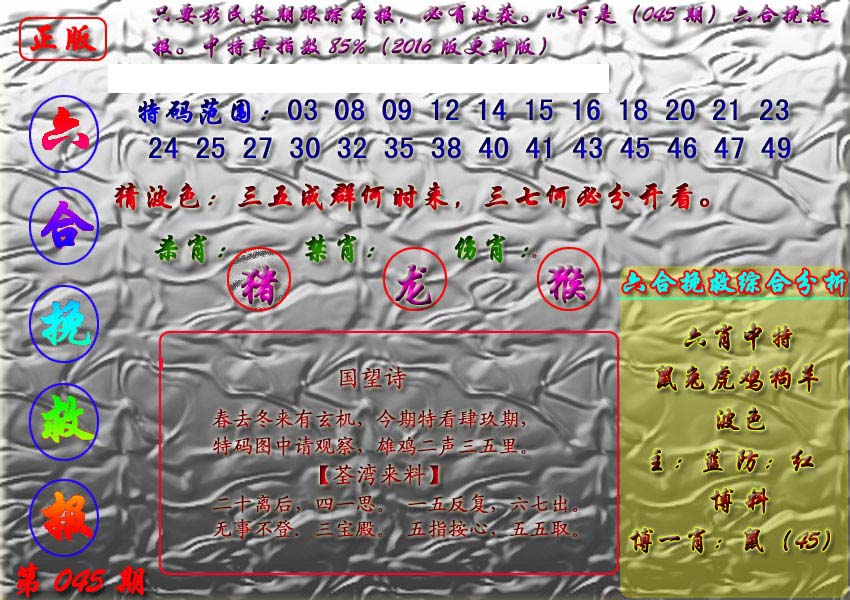 正版
只要彩民长期跟踪本报，必有收获。以下是（045期）六合挽救
报。中特率指数85%（2016版更新版）
六
合
挽
救
报
第045期
特码范围：03 08 09 12 14 15 16 18 20 21 23
24 25 27 30 32 35 38 40 41 43 45 46 47 49
猜波色：三五成群何时来，三七何必分开看。
杀肖：猪 禁肖：龙 伤肖：猴
国望诗
春去冬来有玄机，今期特看肆玖期，
特码图中请观察，雄鸡二声三五里。
【荃湾来料】
二十离后，四一思。 一五反复，六七出。
无事不登．三宝殿。 五指按心，五五取。
六合挽救综合分析
六肖中特
鼠兔虎鸡狗羊
波色
主：蓝防：红
博料
博一肖：鼠（45）